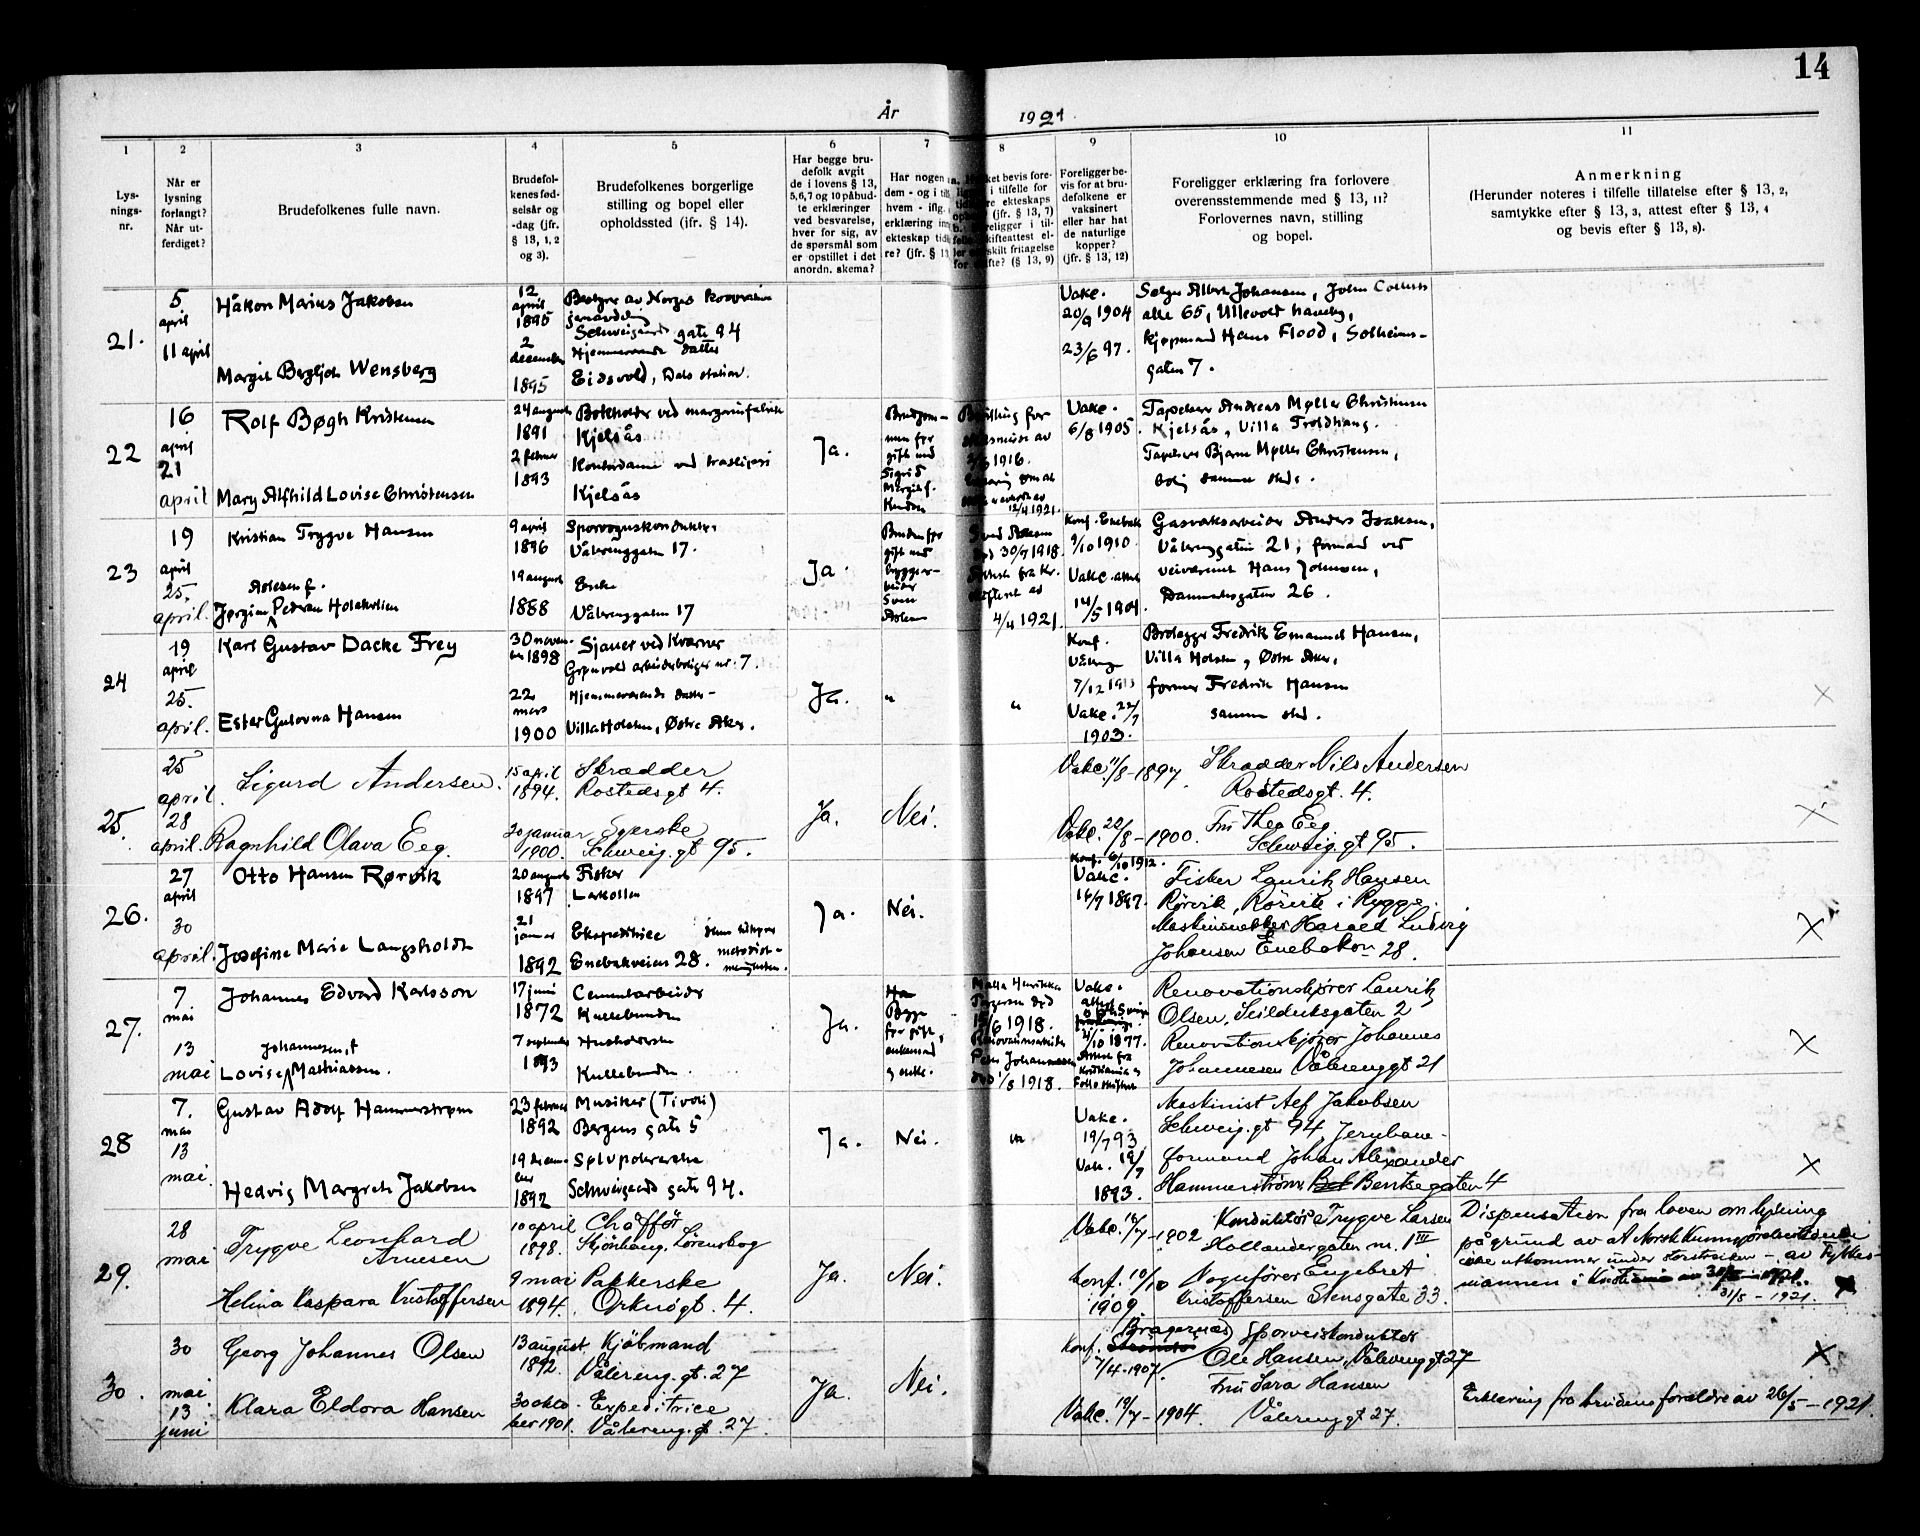 14
År 1921.
1
2
3
4
5
6
7
8
9
10
11
Lys-
nings-
nr.
Når er
lysning
forlangt?
Når ut-
ferdiget?
Brudefolkenes fulle navn.
Brudefol-
kenes fød-
selsår og
-dag (jfr.
§ 13, 1, 2
og 3).
Brudefolkenes borgerlige
stilling og bopel eller
opholdssted (jfr. § 14).
Har begge bru-
defolk avgit
de i lovens § 13,
5,6,7 og 10 påbud-
te erklæringer
ved besvarelse,
hver for sig, av
de spørsmål som
er opstillet i det
anordn. skema?
Har nogen
dem - og i til
hvem - iflg.
erklæring inn
ekteskap tid
re? (jfr. § 13
ket bevis fore-
i tilfelle for
re ekteskaps
(jfr. § 13, 7)
religger i til-
skifteattest el-
skilt fritagelse
for fte? (§ 13, 9)
Foreligger be-
vis for at bru-
defolkene er
vaksinert
eller har hat
de naturlige
kopper?
(jfr. § 13, 12)
Foreligger erklæring fra forlovere
overensstemmende med § 13, 11?
Forlovernes navn, stilling
og bopel.
Anmerkning
(Herunder noteres i tilfelle tillatelse efter § 13, 2,
samtykke efter § 13, 3, attest efter § 13, 4
og bevis efter § 13, 8).
21.
5
april
11 april
Håkon Marius Jakobsen
Margit Bergljot Wensberg
12
april
1895
2
december
1895
Bestyrer av Norges
Schweigaards gate 94
Hjemmeværende datter
Eidsvold, Dals station.
Vakc.
20/9 1904
23/6 97.
Selger Albert Johansen, John Colletts
alle 65, Ullevold haveby,
Kjøpmand Hans Flood, Solheims-
gaten 7.
22
16
april
21
april
Rolf Bøgh Kristensen
Mary Alfhild Lovise Christensen
24 august
1891
2 februar
1893
Bokholder ved margarinfabrik
Kjelsås
Kontordame ved trasliperi
Kjelsås
Ja.
Brudgom-
men før
gift med
Sigrid
Margit f.
Knudsen
Bevilling for
av
1916.
12/4 1921.
Vakc.
6/8 1905.
Tapetserer Andreas Møller Christensen
Kjelsås, Villa Troldhaug.
Tapetserer Bjarne Møller Christensen,
bolig samme sted.
23
19
april
25.
april.
Kristian Trygve Hansen
Aslesen f.
Jørgine Pedrea Holekslien
9 april
1896
19 august
1888
Sporvognskonduktør
Vålerenggaten 17.
Enke
Vålerenggaten 17
Ja.
Bruden før
gift med
Svend Aslesen
død 30/7 1918
4/4 1921.
Konf. Enebak
9/10 1910.
Vakc. attest
14/5 1904.
Gasverksarbeider Anders Isaksen,
Vålerenggaten 21, formand ved
veivæsenet Hans Johnsen,
Danmarksgaten 26.
24
19
april
25.
april.
Karl Gustav Dacke Frey
Ester Gulovna Hansen
30 novem-
ber 1898
22
mars
1900
Sjauer ved Kværner
Grønvold arbeiderboliger nr. 7.
Hjemmeværende datter -
Villa Holsten, Østre Aker.
Ja.
"
"
Konf.
Våleng
7/12 1913
Vakc. 22/7
1903.
Brolegger Fredrik Emanuel Hansen,
Villa Holsten, Østre Aker,
former Fredrik Hansen
samme sted.
×
25.
25
april.
28
april.
Sigurd Andersen.
Ragnhild Olava Eeg.
15 april
1894.
20 januar
1900.
Skrædder
Rostedsgt 4.
Syerske
Schweig. gt 95.
Ja.
Nei.
Vakc. 11/8 - 1897.
Vakc. 20/8 - 1900.
Skrædder Nils Andersen
Rostedsgt. 4.
Fru Thea Eeg
Schweig. gt 95.
×
26.
27
april
30
april.
Otto Hansen Rørvik
Josefine Marie Langsholdt
20 august
1897
21
januar
1892
Fisker
Larkollen
Ekspeditrice
Enebakveien 28.
Ja.
Nei.
Konf. 6/10 1912.
Vakc.
14/7 1897.
Fisker Lauritz Hansen
Rørvik, Rørvik i Rygge.
Maskinsnekker Harald Ludvig
Johansen Enebakvn 28.
×
27.
7.
mai
13
mai
Johannes Edvard Karlsson
Johannesen, f
Lovise Mathiassen.
17 juni
1872
7 september
1893
Cementarbeider
Kullebunden
Husholderske
Kullebunden.
Ja.
Begge
før gift,
enkemand
og enke.
død
15/6 1918.
Renovationsarbeider
Peter Johannessen
død 1/8 1918.
Vakc.
attest
4/10 1877.
Attest fra
Kristiania og
Follo skifterett
Renovationskjører Lauritz
Olsen, Seilduksgaten 2
Renovationskjører Johannes
Johannesen Vålerenggt 21
×
28
7.
mai
13
mai.
Gustav Adolf Hammerstrøm
Hedvig Margreth Jakobsen
23 februar
1892
19 decem-
ber
1892
Musiker (Tivoli)
Bergens gate 5
Sølvpolererske
Schweigaards gate 94.
Ja.
Nei.
"
Vakc.
19/7 93
Vakc. 19/7
1893.
Maskinist Alf Jakobsen
Schweig. gt 94, Jernbane-
formand Johan Alexander
Hammerstrøm Bentsegaten 4
×
29.
28
mai
Trygve Leonhard
Arnesen
Helina Kaspara Kristoffersen
10 april
1898.
9 mai
1894.
Chåffør
Skjönhaug, Lørenskog
Pakkerske
Orknøgt. 4.
Ja.
Nei.
Vakc. 18/7 - 1902
Konf. 10/10
1909.
Konduktør Trygve Larsen
Hollendergaten nr. 1 III
Vognfører Engebret
Kristoffersen Stensgate 33.
Dispensation fra loven om lysning
på grund av at Norsk Kunngjørelsestidende
ikke utkommer under storstreiken - av Fylkes-
mannen i Kristiania av 30/5 - 1921.
31/5 - 1921.
×
30.
30
mai
13
juni
Georg Johannes Olsen
Klara Eldora Hansen
13 august
1892.
30 okto-
ber 1901.
Kjøbmand
Vålereng. gt. 27
Expeditrice
Vålereng. gt. 27.
Ja.
Nei.
Konf. Strømsø (Bragernæs)
7/4 - 1907.
Vakc. 19/7 - 1904.
Sporveiskonduktør
Ole Hansen, Vålereng gt 27
Fru Sara Hansen
Vålereng gt 27.
Erklæring fra brudens forældre av 26/5 - 1921.
×